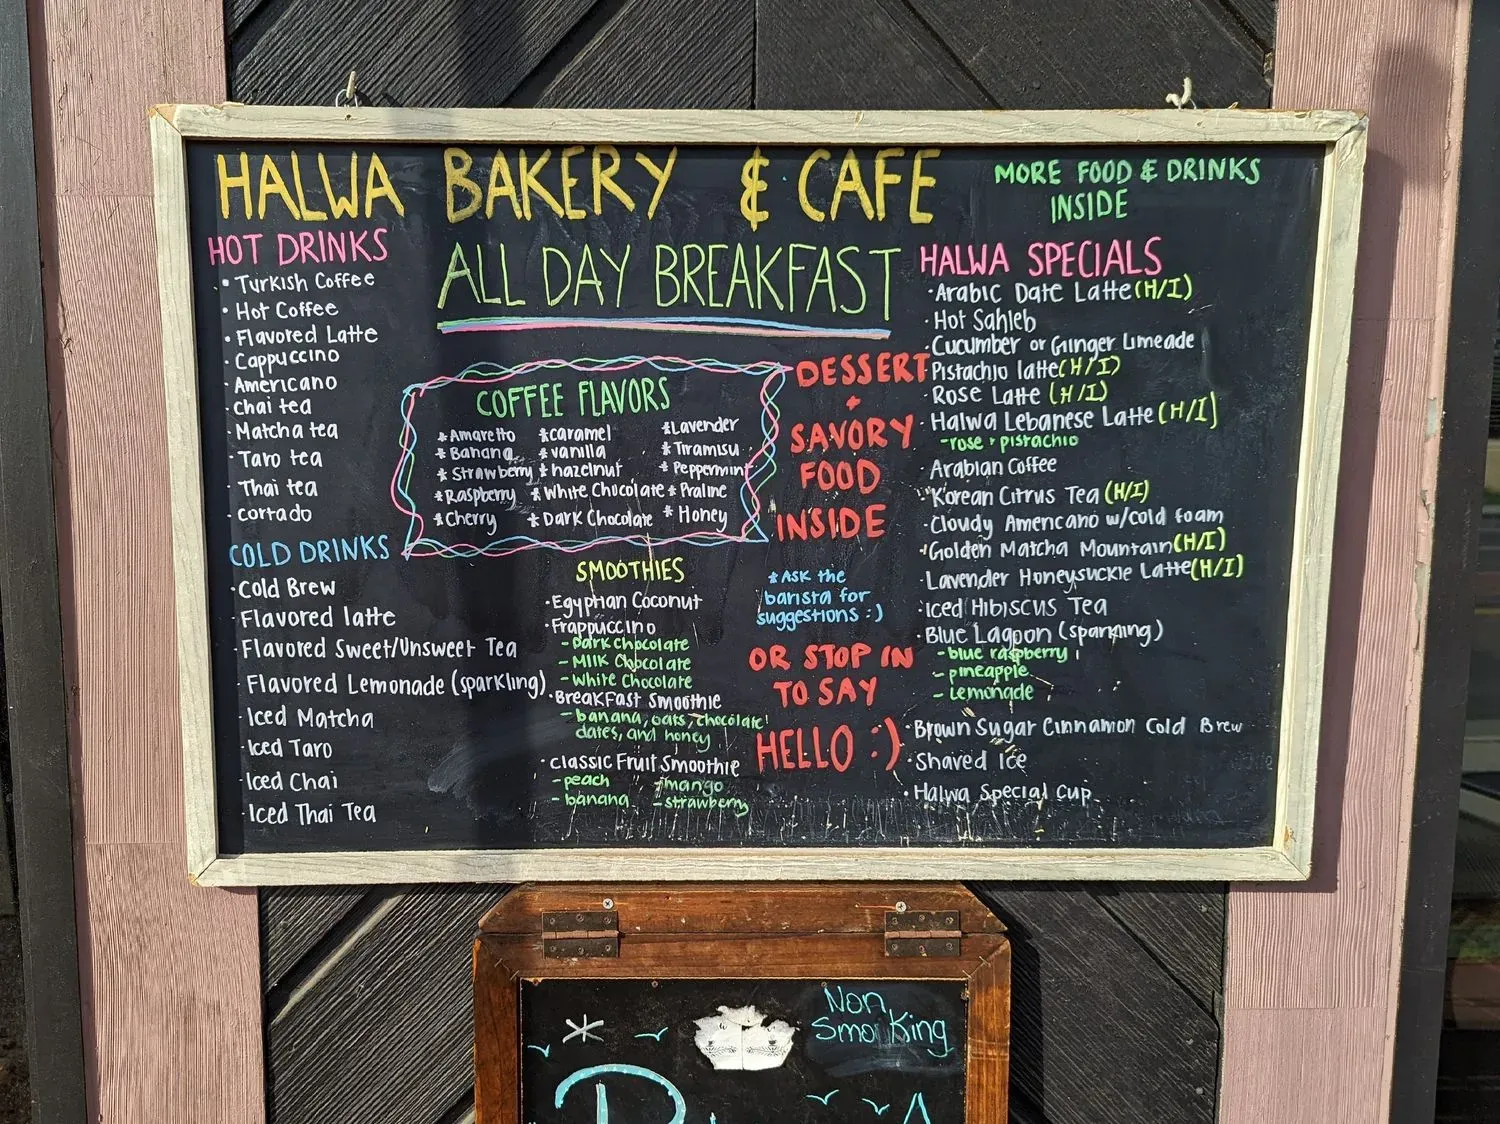 HALWA BAKERY & CAFE
MORE FOOD & DRINKS
INSIDE
HOT DRINKS
• Turkish Coffee
• Hot Coffee
• Flavored Latte
• Cappuccino
• Americano
• Chai tea
• Matcha tea
• Taro tea
• Thai tea
• cortado
COLD DRINKS
• Cold Brew
• Flavored latte
• Flavored Sweet/Unsweet Tea
• Flavored Lemonade (sparkling)
• Iced Matcha
• Iced Taro
• Iced Chai
• Iced Thai Tea
ALL DAY BREAKFAST
COFFEE FLAVORS
* Amaretto
* Banana
* Strawberry
* Raspberry
* Cherry
* caramel
* vanilla
* hazelnut
* White Chocolate
* Dark Chocolate
* Lavender
* Tiramisu
* Peppermint
* Praline
* Honey
SMOOTHIES
• Egyptian Coconut
• Frappuccino
- Dark Chocolate
- Milk Chocolate
- White Chocolate
• Breakfast Smoothie
- banana, oats, chocolate
dates, and honey
• Classic Fruit Smoothie
- peach - mango
- banana - strawberry
DESSERT
+
SAVORY
FOOD
INSIDE
* Ask the
barista for
suggestions :)
OR STOP IN
TO SAY
HELLO :)
HALWA SPECIALS
• Arabic Date Latte (H/I)
• Hot Sahleb
• Cucumber or Ginger Limeade
• Pistachio latte (H/I)
• Rose Latte (H/I)
• Halwa Lebanese Latte (H/I)
- rose + pistachio
• Arabian Coffee
• Korean Citrus Tea (H/I)
• Cloudy Americano w/cold foam
• Golden Matcha Mountain (H/I)
• Lavender Honeysuckle Latte (H/I)
• Iced Hibiscus Tea
• Blue Lagoon (sparkling)
- blue raspberry
- pineapple
- Lemonade
• Brown Sugar Cinnamon Cold Brew
• Shaved Ice
• Halwa Special Cup
Non
Smoking